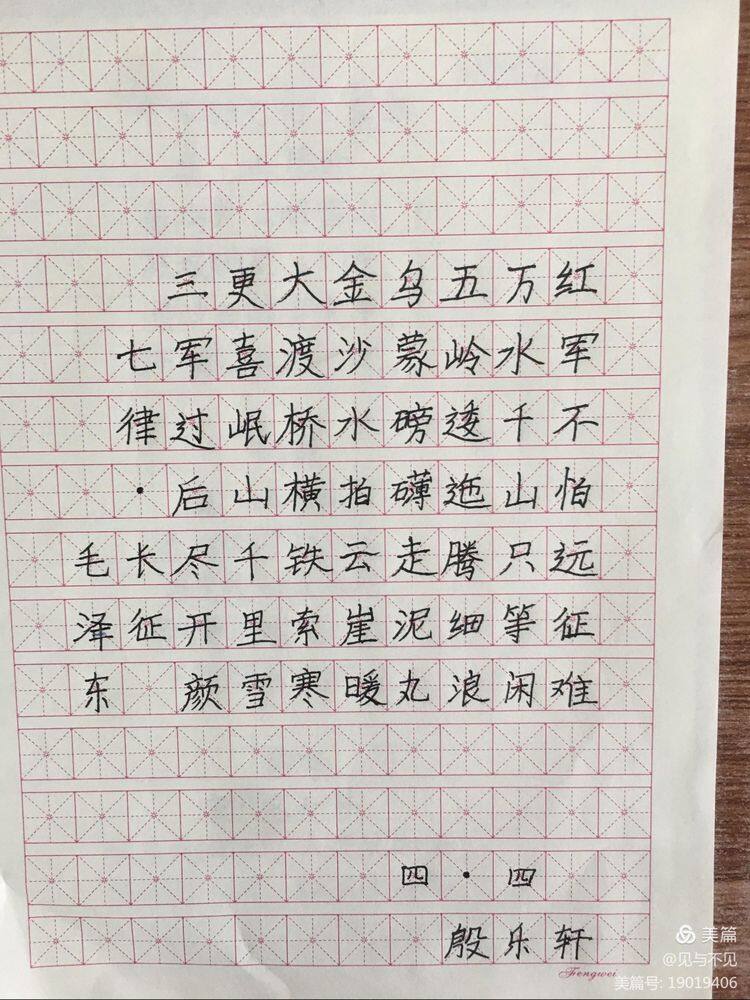 红军不怕远征难
万水千山只等闲
五岭逶迤腾细浪
乌蒙磅礴走泥丸
金沙水拍云崖暖
大渡桥横铁索寒
更喜岷山千里雪
三军过后尽开颜
七律·长征
毛泽东
四·四
殷乐轩
Fengwei
美篇
@见与不见
美篇号: 19019406